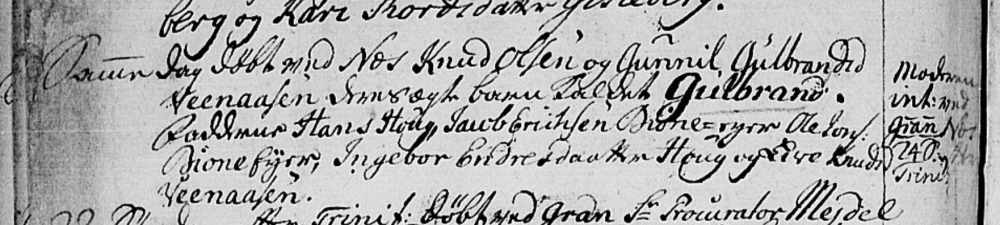 berg og Kari Thordsdatter Gisleberg.
Samme dag döbt ved Næs Knud Olsen og Gunnil Gulbrandsd
Veenaasen deres ægte barn kaldet Gulbrand.
Fadderne Hans Houg Jacob Erichsen Bione=eyer Ole Jons:
Bione Eyer, Ingebor Endresdaatter Houg og Knuds
Veenaasen.
Moderen
int: ved
Grann
24 S.
Trinit
Trinit: döbt ved Gran Sr Procurator Mejdel